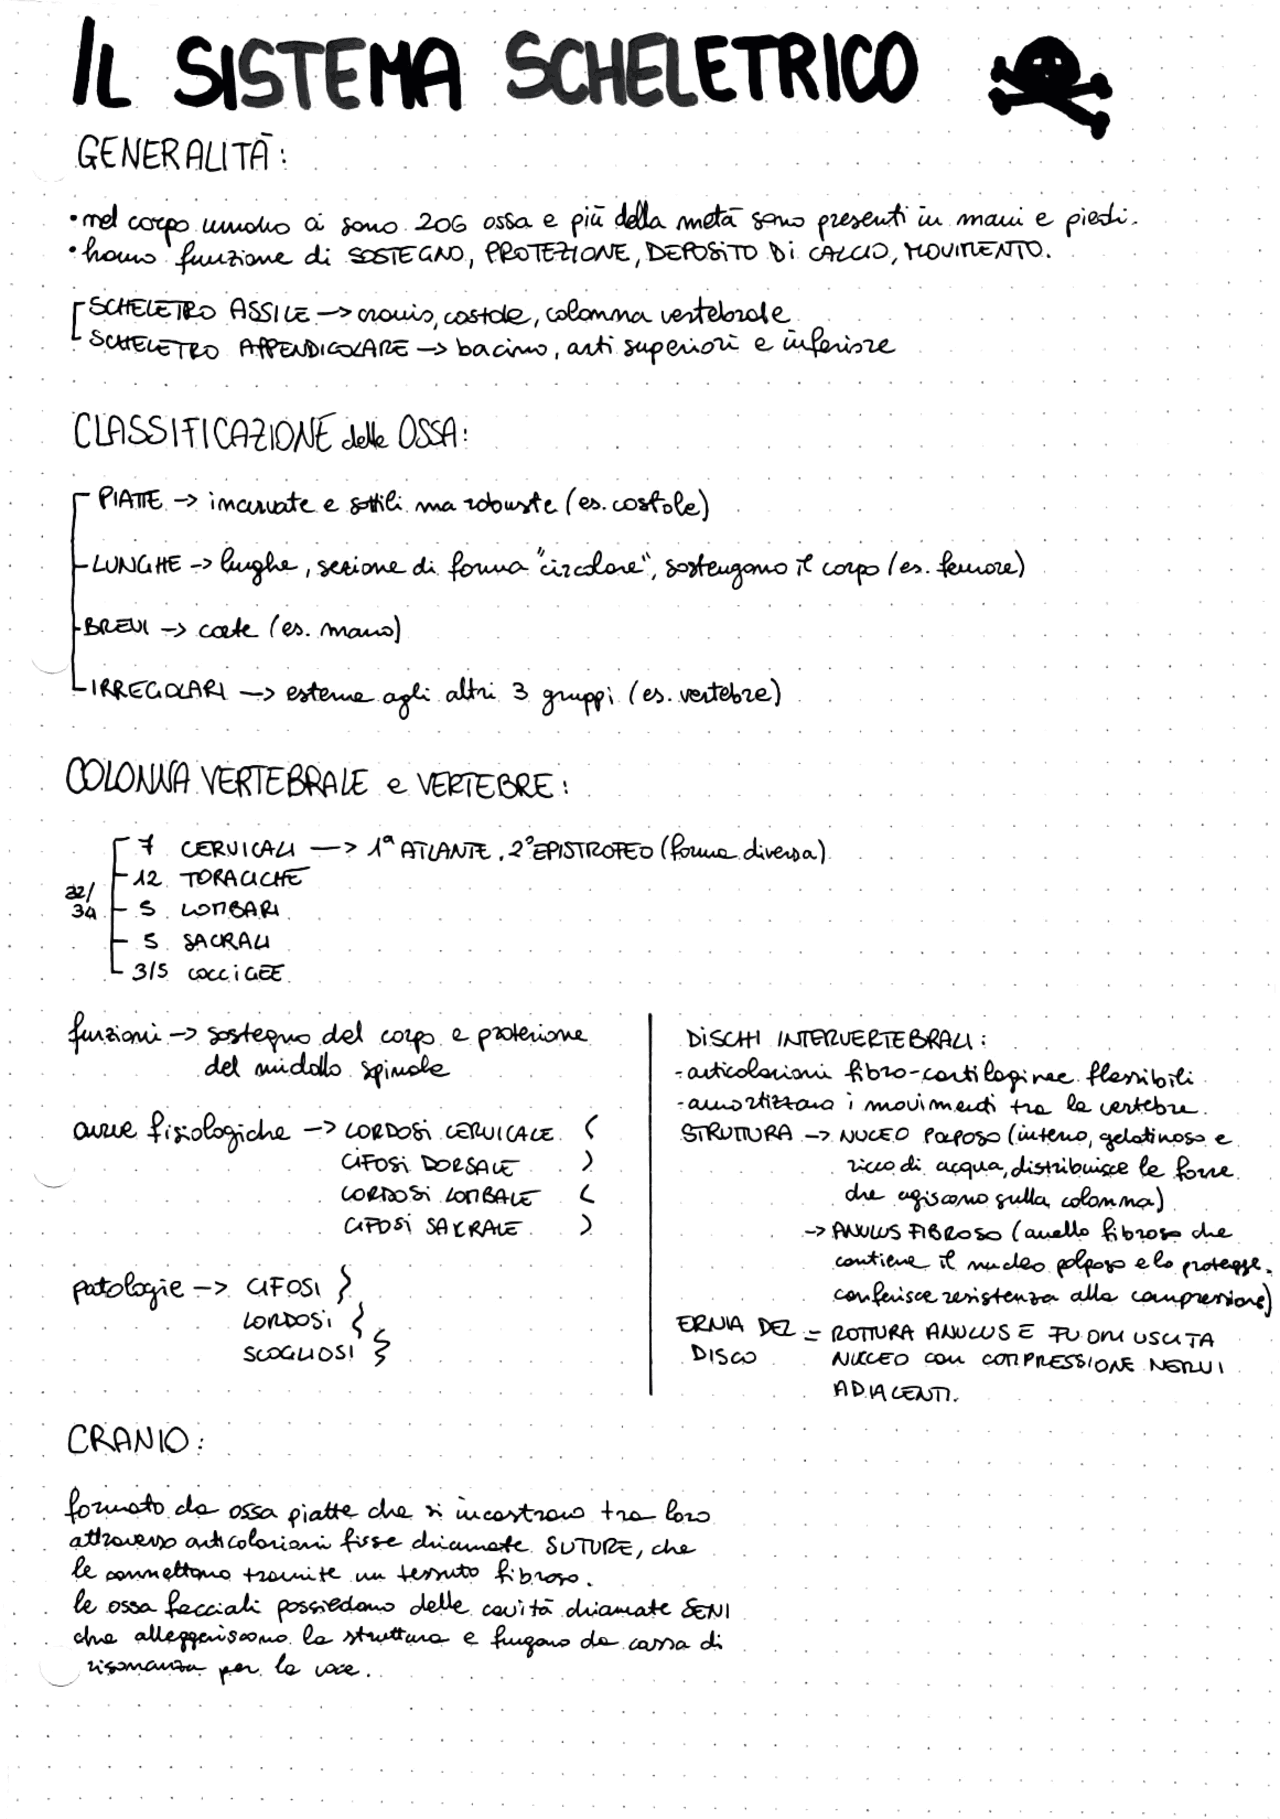 IL SISTEMA SCHELETRICO
GENERALITÀ:
• nel corpo umano ci sono 206 ossa e più della metà sono presenti in mani e piedi.
• hanno funzione di SOSTEGNO, PROTEZIONE, DEPOSITO DI CALCIO, MOVIMENTO.
SCHELETRO ASSILE -> cranio, costole, colonna vertebrale
SCHELETRO APPENDICOLARE -> bacino, arti superiori e inferiore
CLASSIFICAZIONE delle OSSA:
PIATTE -> incurvate e sottili ma robuste (es. costole)
LUNGHE -> lunghe, sezione di forma "circolare", sostengono il corpo (es. femore)
BREVI -> corte (es. mano)
IRREGOLARI -> esterne agli altri 3 gruppi (es. vertebre)
COLONNA VERTEBRALE e VERTEBRE:
7 CERVICALI -> 1ª ATLANTE, 2° EPISTROFEO (forma diversa)
12 TORACICHE
32/
34
5 LOMBARI
5 SACRALI
3/5 COCCIGEE
funzioni -> sostegno del corpo e protezione
del midollo spinale
curve fisiologiche -> LORDOSI CERVICALE (
CIFOSI DORSALE )
LORDOSI LOMBALE (
CIFOSI SACRALE )
patologie -> CIFOSI }
LORDOSI {
SCOGLIOSI
DISCHI INTERVERTEBRALI:
- articolazioni fibro-cartilaginee flessibili
- amortizzano i movimenti tra le vertebre.
STRUTTURA -> NUCLEO POLPOSO (interno, gelatinoso e
ricco di acqua, distribuisce le forze
che agiscono sulla colonna)
-> ANULUS FIBROSO (anello fibroso che
contiene il nucleo polposo e lo protegge.
conferisce resistenza alla compressione)
ERNIA DEL = ROTTURA ANULUS E FUORIUSCITA
DISCO NUCLEO CON COMPRESSIONE NERVI
ADIACENTI.
CRANIO:
formato da ossa piatte che si incastrano tra loro
attraverso articolazioni fisse chiamate SUTURE, che
le connettono tramite un tessuto fibroso.
le ossa facciali possiedono delle cavità chiamate SENI
che alleggeriscono la struttura e fungono da cassa di
risonanza per la voce.